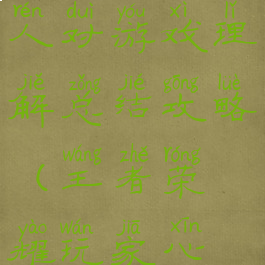 rén duì yóu xì lǐ
人对游戏理
jiě zǒng jié gōng lüè
解总结攻略
wáng zhě róng
（王者荣
yào wán jiā xīn
耀玩家心